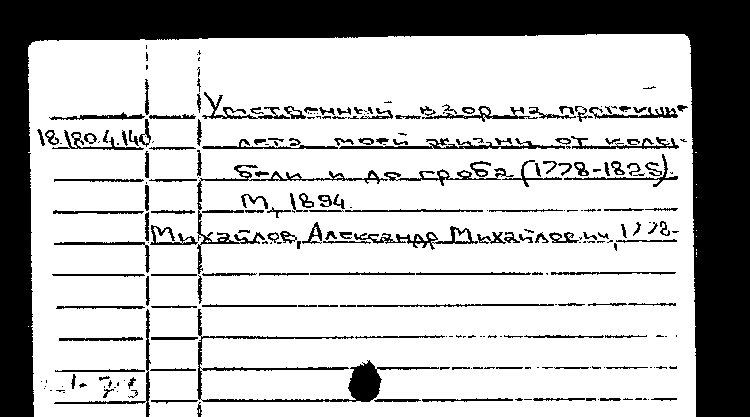 Умственный взор на протекшие
18.180.4.140 лета моей жизни от колы-
бели и до гроба (1778-1825).
М, 1894.
Михайлов, Александр Михайлович, 1778-